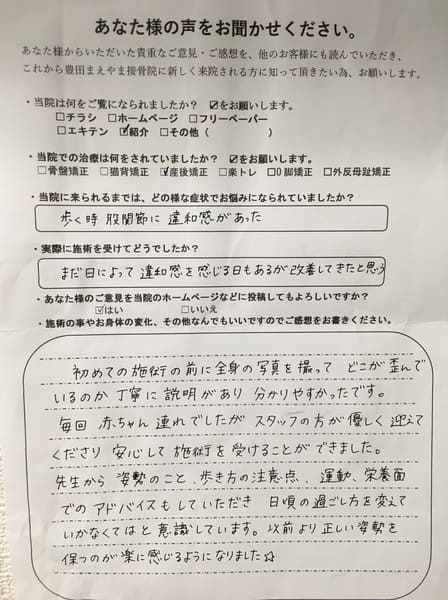 あなた様の声をお聞かせください。
あなた様からいただいた貴重なご意見・ご感想を、他のお客様にも読んでいただき、
これから豊田まえやま接骨院に新しく来院される方に知って頂きたい為、お願いします。
・当院は何をご覧になられましたか？ ☑をお願いします。
□チラシ □ホームページ □フリーペーパー
□エキテン ☑紹介 □その他（ ）
・当院での治療は何をされていましたか？ ☑をお願いします。
□骨盤矯正 □猫背矯正 ☑産後矯正 □楽トレ □O脚矯正 □外反母趾矯正
・当院に来られるまでは、どの様な症状でお悩みになられていましたか？
歩く時 股関節に 違和感があった
・実際に施術を受けてどうでしたか？
まだ日によって 違和感を感じる日もあるが 改善してきたと思う
・あなた様のご意見を当院のホームページなどに投稿してもよろしいですか？
☑はい □いいえ
・施術の事やお身体の変化、その他なんでもいいですのでご感想をお書きください。
初めての施術の前に全身の写真を撮って どこが歪んで
いるのか 丁寧に説明があり 分かりやすかったです。
毎回 赤ちゃん連れでしたが スタッフの方が優しく迎えて
くださり 安心して施術を受けることができました。
先生から 姿勢のこと、歩き方の注意点、運動、栄養面
でのアドバイスもしていただき 日頃の過ごし方を変えて
いかなくてはと意識しています。以前より正しい姿勢を
保つのが楽に感じるようになりました☆